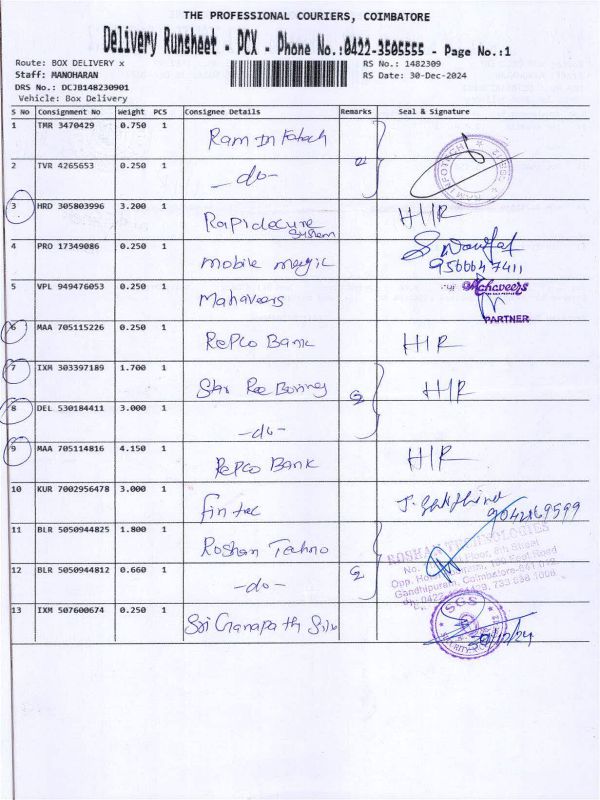 THE PROFESSIONAL COURIERS, COIMBATORE
Delivery Runsheet - PCX - Phone No.:0422-3505555 - Page No.:1
Route: BOX DELIVERY x
RS No.: 1482309
Staff: MANOHARAN
RS Date: 30-Dec-2024
DRS No.: DCJB148230901
Vehicle: Box Delivery
S No Consignment No Weight PCS Consignee Details Remarks Seal & Signature
1 TMR 3470429 0.750 1
2 TVR 4265653 0.250 1 -do-
3 HRD 305803996 3.200 1 Rapidecure System H/R
4 PRO 17349086 0.250 1 mobile magic
9566647411
5 VPL 949476053 0.250 1 Mahaveers Mahaveers
PARTNER
6 MAA 705115226 0.250 1 Repco Bank H/R
7 IXM 303397189 1.700 1 H/R
8 DEL 530184411 3.000 1 -do-
9 MAA 705114816 4.150 1 Repco Bank H/R
10 KUR 7002956478 3.000 1 fin tec
9042169599
11 BLR 5050944825 1.800 1 Roshan Techno
ROSHAN TECHNOLOGIES
12 BLR 5050944812 0.660 1 -do-
Gandhipuram, Coimbatore-641 012.
13 IXM 507600674 0.250 1 Sri Ganapathy Silu
SGS